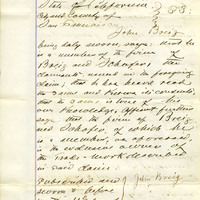 State of California } S.S.
County of
San Francisco
John Breig
being duly sworn says: that he
is a member of the firm of
Breig and Schafer, the
claimants named in the foregoing
claim; that he has heard read
the same and knows its contents;
that the same is true of his
own knowledge, affiant further
says that the firm of Breig
and Schafer, of which he
is a member, as aforesaid,
is the exclusive owner of
the trade-mark described
in said claim.
Subscribed and } John Breig
sworn to before